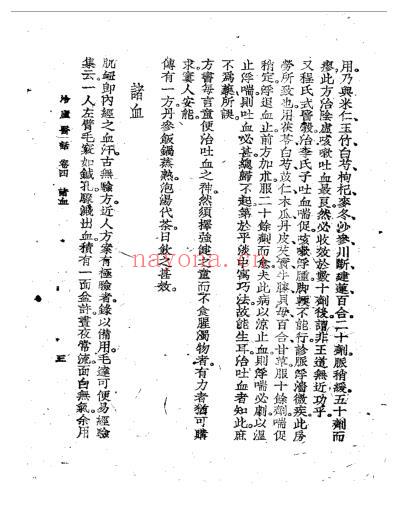 用乃與米仁玉竹白芍枸杞麥冬沙參川斷建蓮百合二十劑脈稍緩五十劑而
瘳此方治陰虛咳嗽吐血最良然必收效於數十劑後謂非王道無近功乎
又程氏式穀治李氏子吐血喘促咳嗽浮腫脚軟不能行診脈浮濇微疾此房
勞所致也用茯苓白芍苡仁木瓜丹皮牛膝貝母百合甘草服十餘劑喘促
稍定浮退血止前方加朮服二十餘劑而愈夫此病以涼止血則浮喘必劇以溫
止浮喘則吐血必甚魏歸不起第於平淡中寓巧法故能生耳治吐血者知此庶
不為藥所誤
方書每言童便治吐血之神然須擇強健之童而不食腥濁物者有力者猶可購
求窶人安能
傳有一方丹參飯鍋蒸熟泡湯代茶日飲之甚效
諸血
肌衄即內經之血汗古無驗方近人方案有極驗者錄以備用毛達可便易經驗
集云一人左臂毛竅如鍼孔驟濺出血積有一面盆許晝夜常流面白無氣余用
冷廬醫話 卷四 諸血
nayona.cn